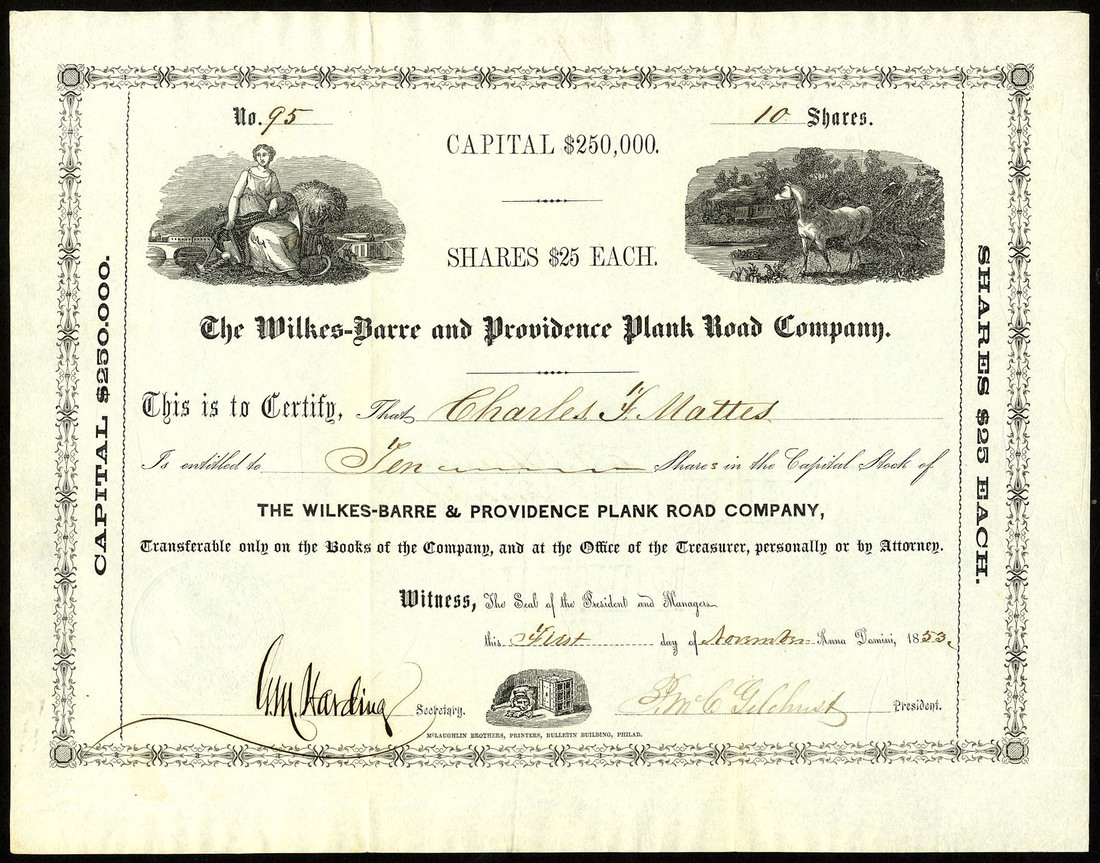 No. 95
10 Shares.
CAPITAL $250,000.
SHARES $25 EACH.
CAPITAL $250.000.
SHARES $25 EACH.
The Wilkes-Barre and Providence Plank Road Company.
This is to Certify, That Charles F. Mattes
Is entitled to Ten Shares in the Capital Stock of
THE WILKES-BARRE & PROVIDENCE PLANK ROAD COMPANY,
Transferable only on the Books of the Company, and at the Office of the Treasurer, personally or by Attorney.
Witness, The Seal of the President and Managers
this First day of November Anna Domini, 1853.
G. M. Harding Secretary.
P. McC Gilchrist President.
McLAUGHLIN BROTHERS, PRINTERS, BULLETIN BUILDING, PHILAD.